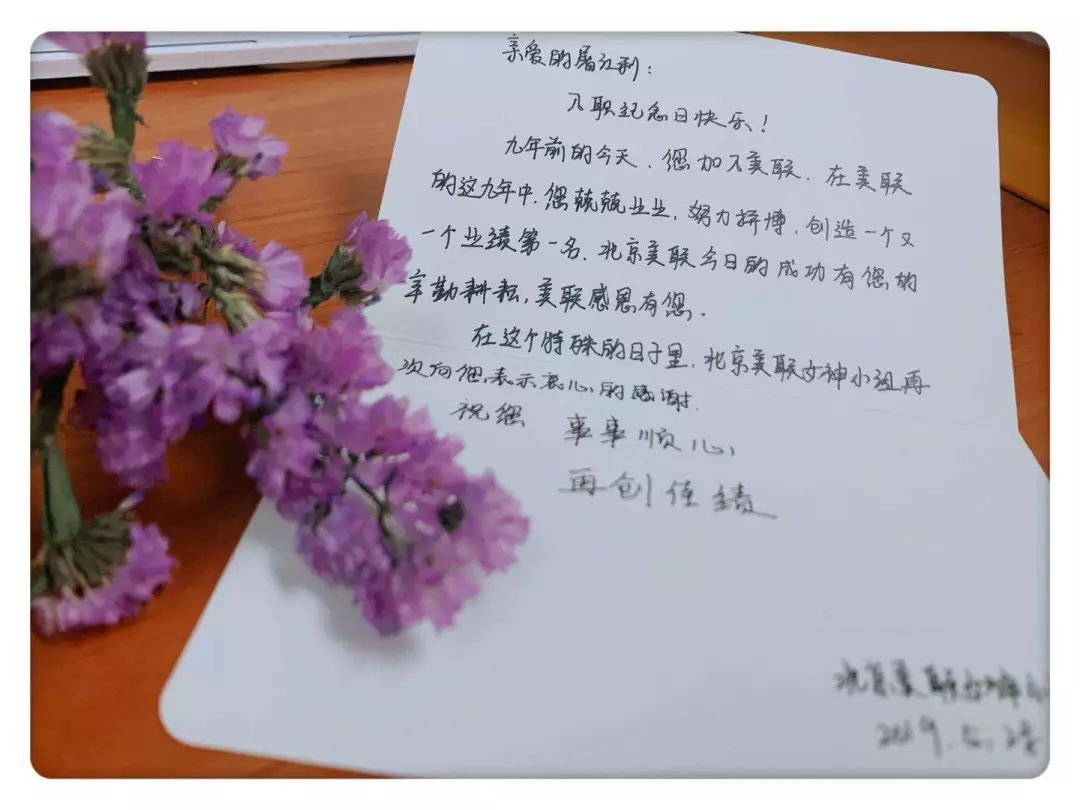 亲爱的屠江利：
入职纪念日快乐！
九年前的今天，您加入美联，在美联
的这九年中，您兢兢业业，努力拼博，创造一个又
一个业绩第一名，北京美联今日的成功有您的
辛勤耕耘，美联感恩有您。
在这个特殊的日子里，北京美联女神小组再
次向您表示衷心的感谢.
祝您 事事顺心
再创佳绩
北京美联女神小
2019.5.